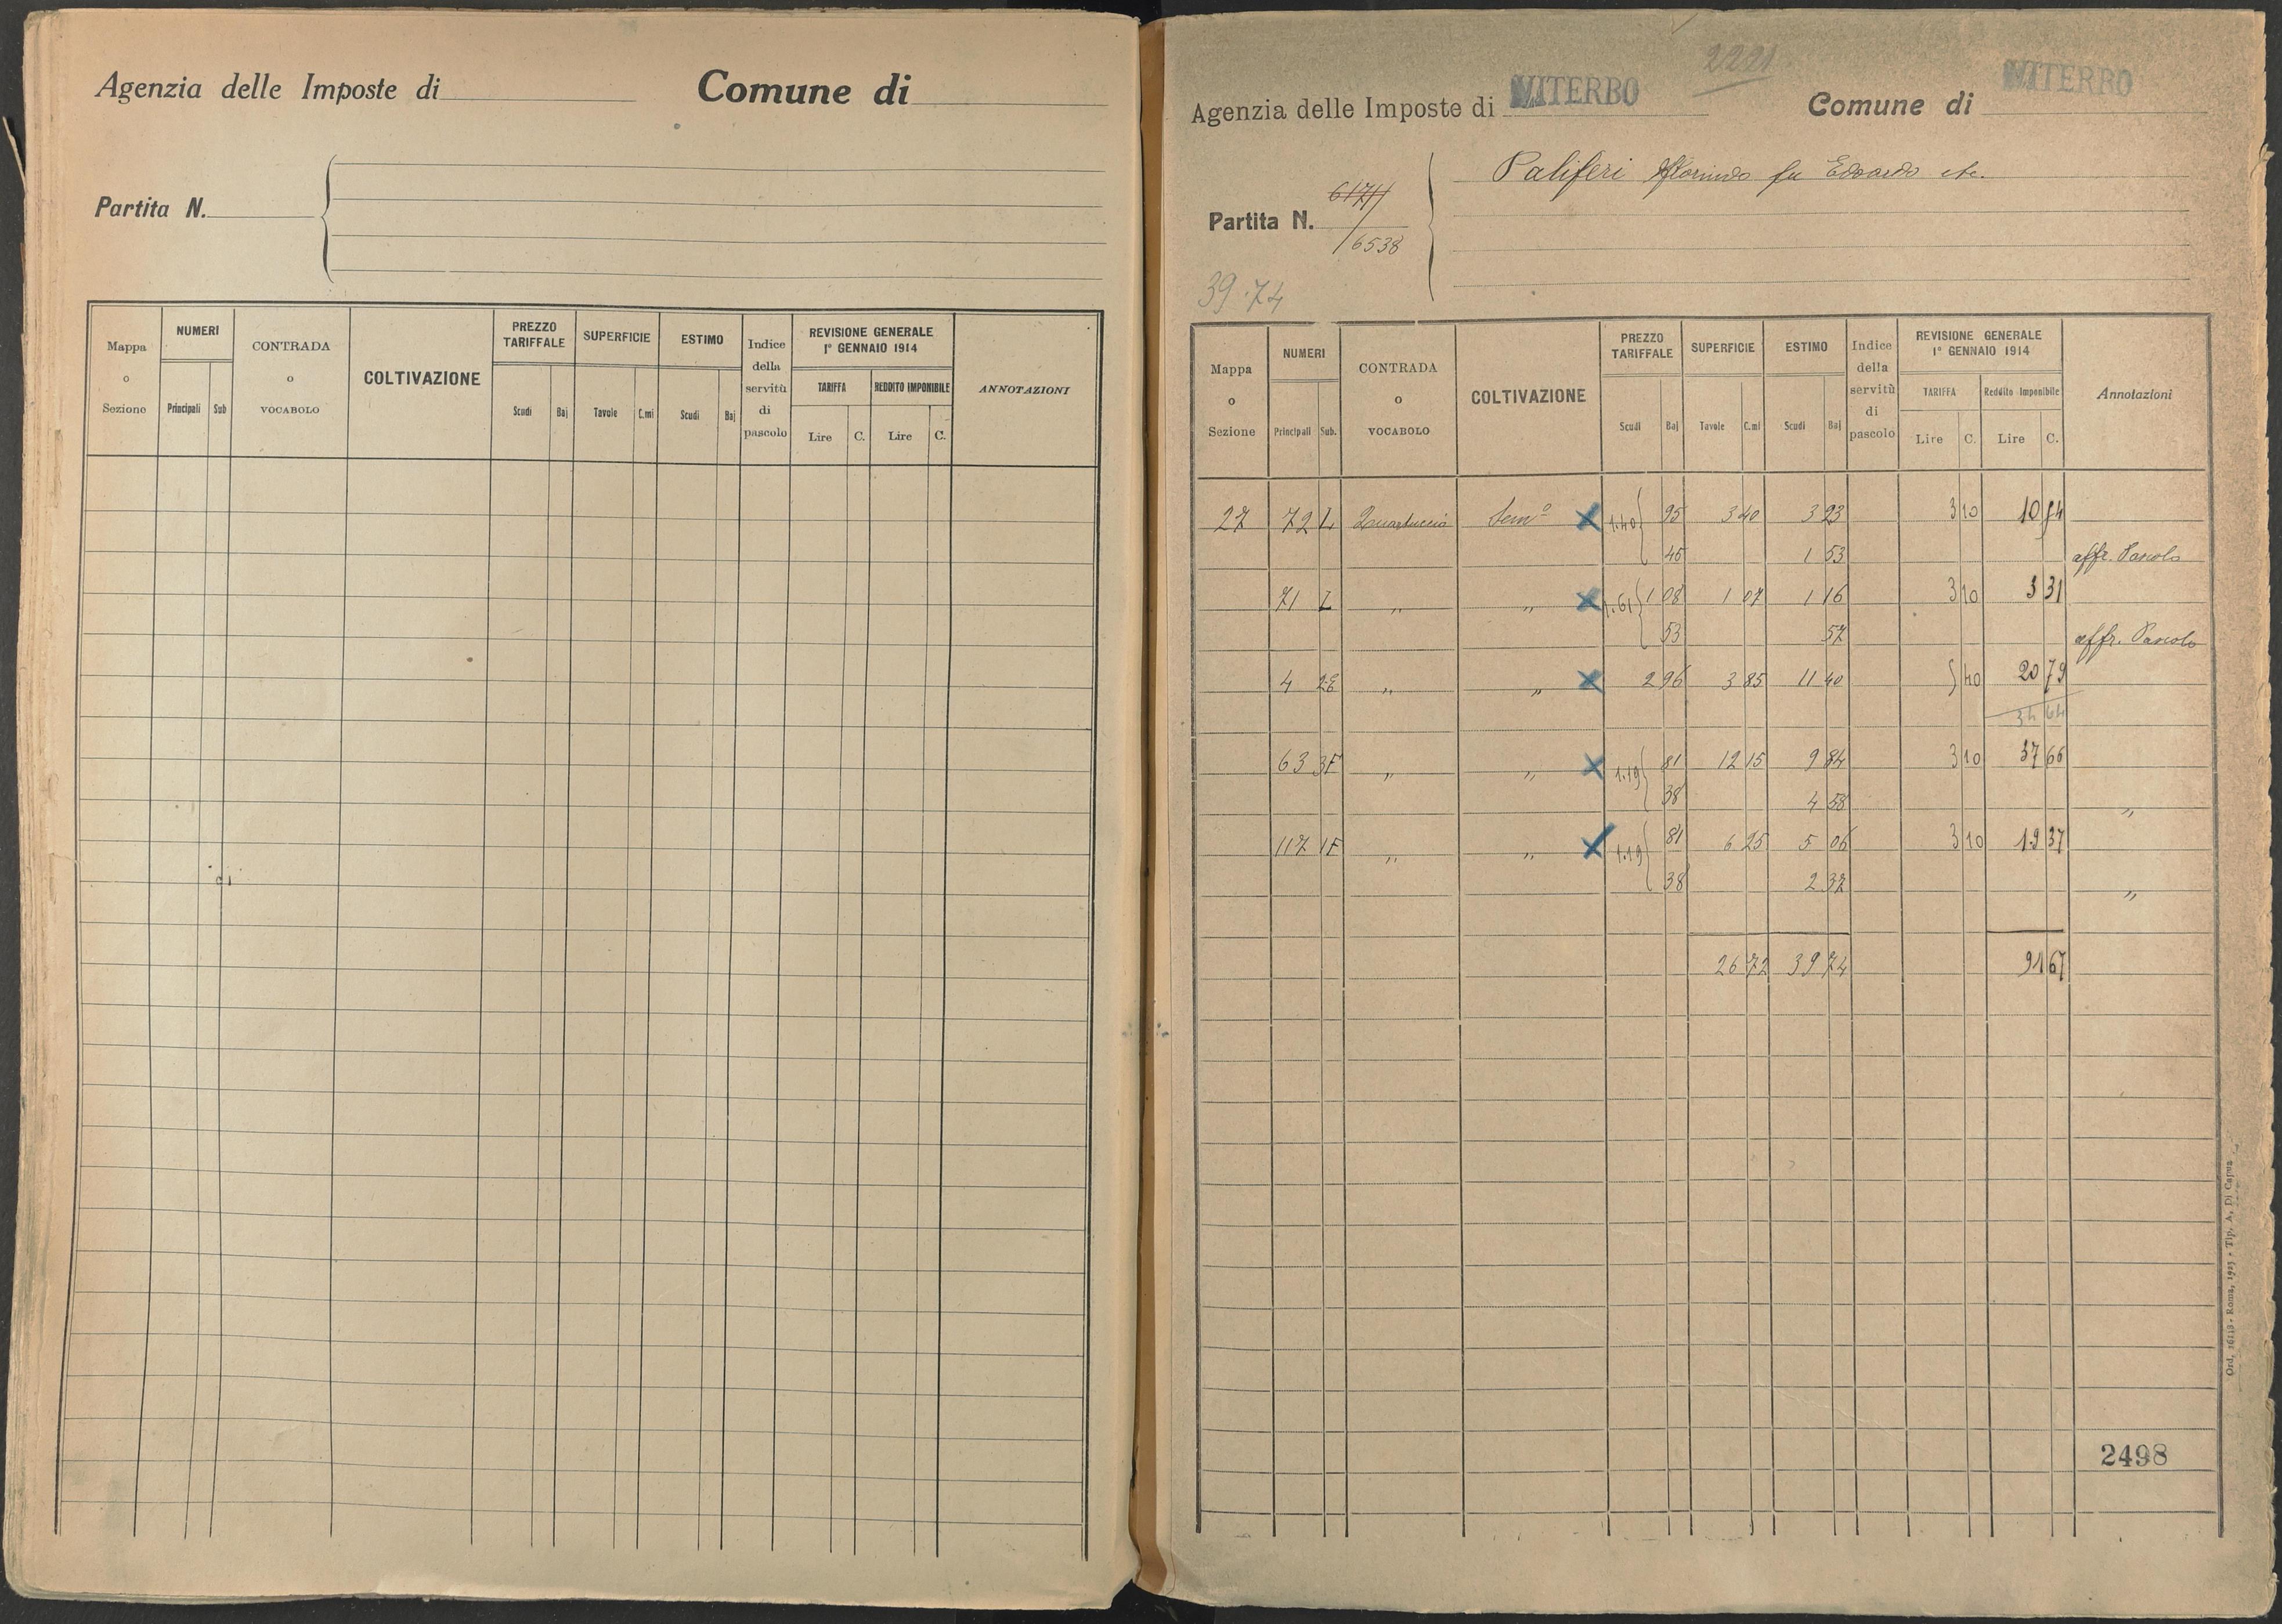 Agenzia delle Imposte di Comune di
Partita N.
Mappa o Sezione NUMERI CONTRADA o VOCABOLO COLTIVAZIONE PREZZO TARIFFALE SUPERFICIE ESTIMO Indice della servitù di pascolo REVISIONE GENERALE 1° GENNAIO 1914 ANNOTAZIONI
TARIFFA REDDITO IMPONIBILE
Principali Sub Scudi Baj Tavole C.mi Scudi Baj Lire C. Lire C.
2221
Agenzia delle Imposte di VITERBO Comune di VITERBO
Paliferi Florindo fu Edoardo etc.
Partita N. 6171
6538
39.74
Mappa o Sezione NUMERI CONTRADA o VOCABOLO COLTIVAZIONE PREZZO TARIFFALE SUPERFICIE ESTIMO Indice della servitù di pascolo REVISIONE GENERALE 1° GENNAIO 1914 Annotazioni
TARIFFA Reddito Imponibile
Principali Sub. Scudi Baj Tavole C.mi Scudi Baj Lire C. Lire C.
27 72 L Quartuccio Sem° X 1.40 95 3 40 3 23 3 10 10 54
45 1 53 affr. Pascolo
71 L " " X 1.61 1 08 1 07 1 16 3 10 3 31
53 57 affr. Pascolo
4 2E " " X 2 96 3 85 11 40 5 40 20 79
34 64
63 3F " " X 1.19 81 12 15 9 84 3 10 37 66
38 4 58 "
117 1F " " X 1.19 81 6 25 5 06 3 10 19 37
38 2 37 "
26 72 39 74 91 67
2498
Ord. 16118 - Roma, 1923 - Tip. A. Di Capua